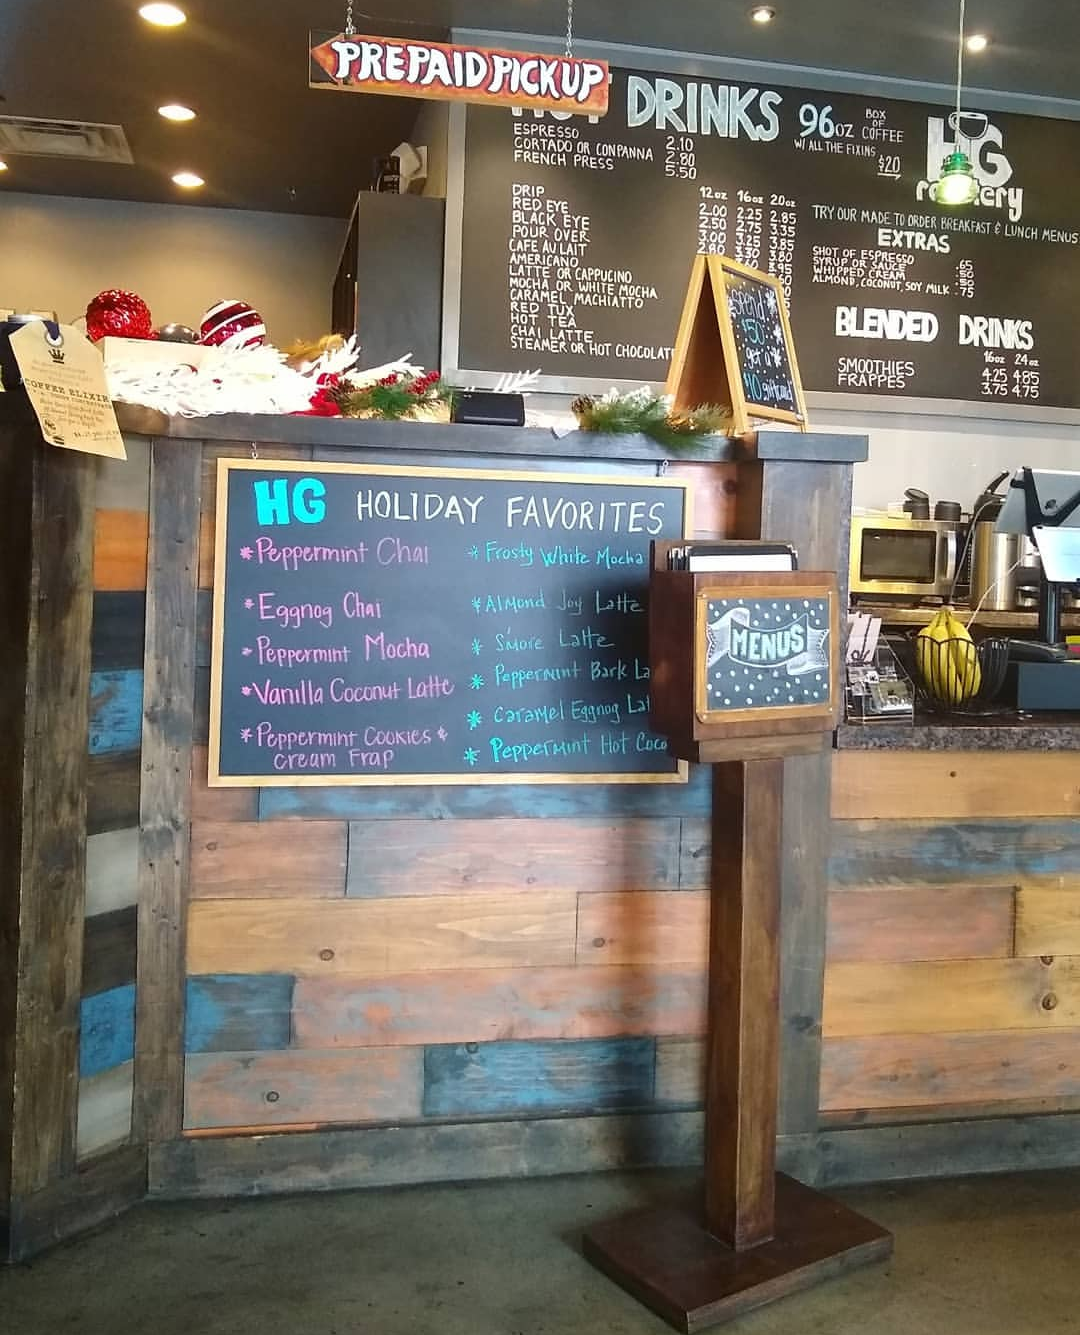 PREPAID PICKUP
DRINKS
ESPRESSO 2.10
CORTADO OR CONPANNA 2.80
FRENCH PRESS 5.50
12oz 16oz 20oz
DRIP 2.00 2.25 2.85
RED EYE 2.50 2.75 3.35
BLACK EYE 3.00 3.25 3.85
POUR OVER 2.80 3.30 3.80
CAFE AU LAIT
AMERICANO
LATTE OR CAPPUCINO
MOCHA OR WHITE MOCHA
CARAMEL MACHIATTO
RED TUX
HOT TEA
CHAI LATTE
STEAMER OR HOT CHOCOLAT
96oz BOX OF COFFEE
W/ ALL THE FIXINS $20
HG
TRY OUR MADE TO ORDER BREAKFAST & LUNCH MENUS
EXTRAS
SHOT OF ESPRESSO .65
SYRUP OR SAUCE .50
WHIPPED CREAM .50
ALMOND, COCONUT, SOY MILK .75
BLENDED DRINKS
16oz 24oz
SMOOTHIES 4.25 4.85
FRAPPES 3.75 4.75
Spend
$50
get a
$10 giftcard
COFFEE ELIXIR
HG HOLIDAY FAVORITES
*Peppermint Chai
*Eggnog Chai
*Peppermint Mocha
*Vanilla Coconut Latte
*Peppermint Cookies &
Cream Frap
*Frosty White Mocha
*Almond Joy Latte
* S'more Latte
* Peppermint Bark La
* Caramel Eggnog Lat
* Peppermint Hot Coco
MENUS